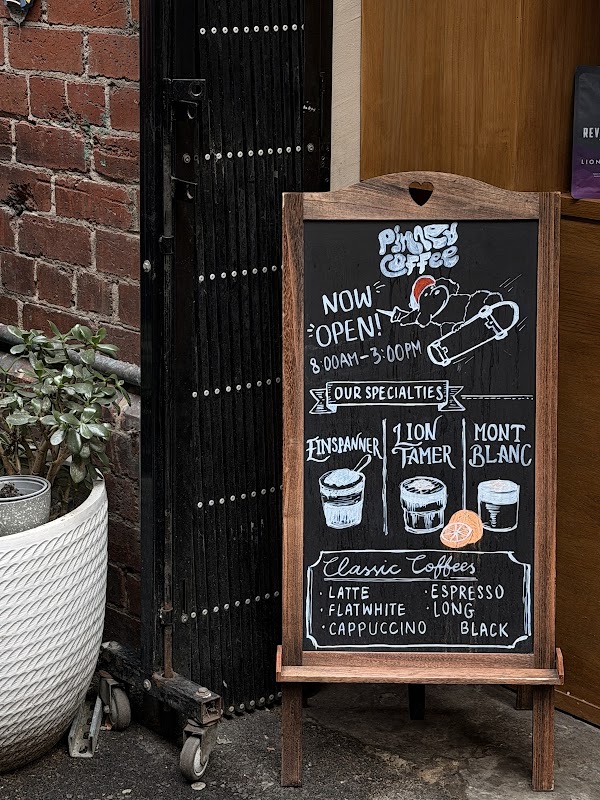 Pinned
Coffee
NOW
OPEN!
8:00AM-3:00PM
OUR SPECIALTIES
EINSPANNER
LION
TAMER
MONT
BLANC
Classic Coffees
· LATTE
· FLATWHITE
· CAPPUCCINO
· ESPRESSO
· LONG
BLACK
REV
LION